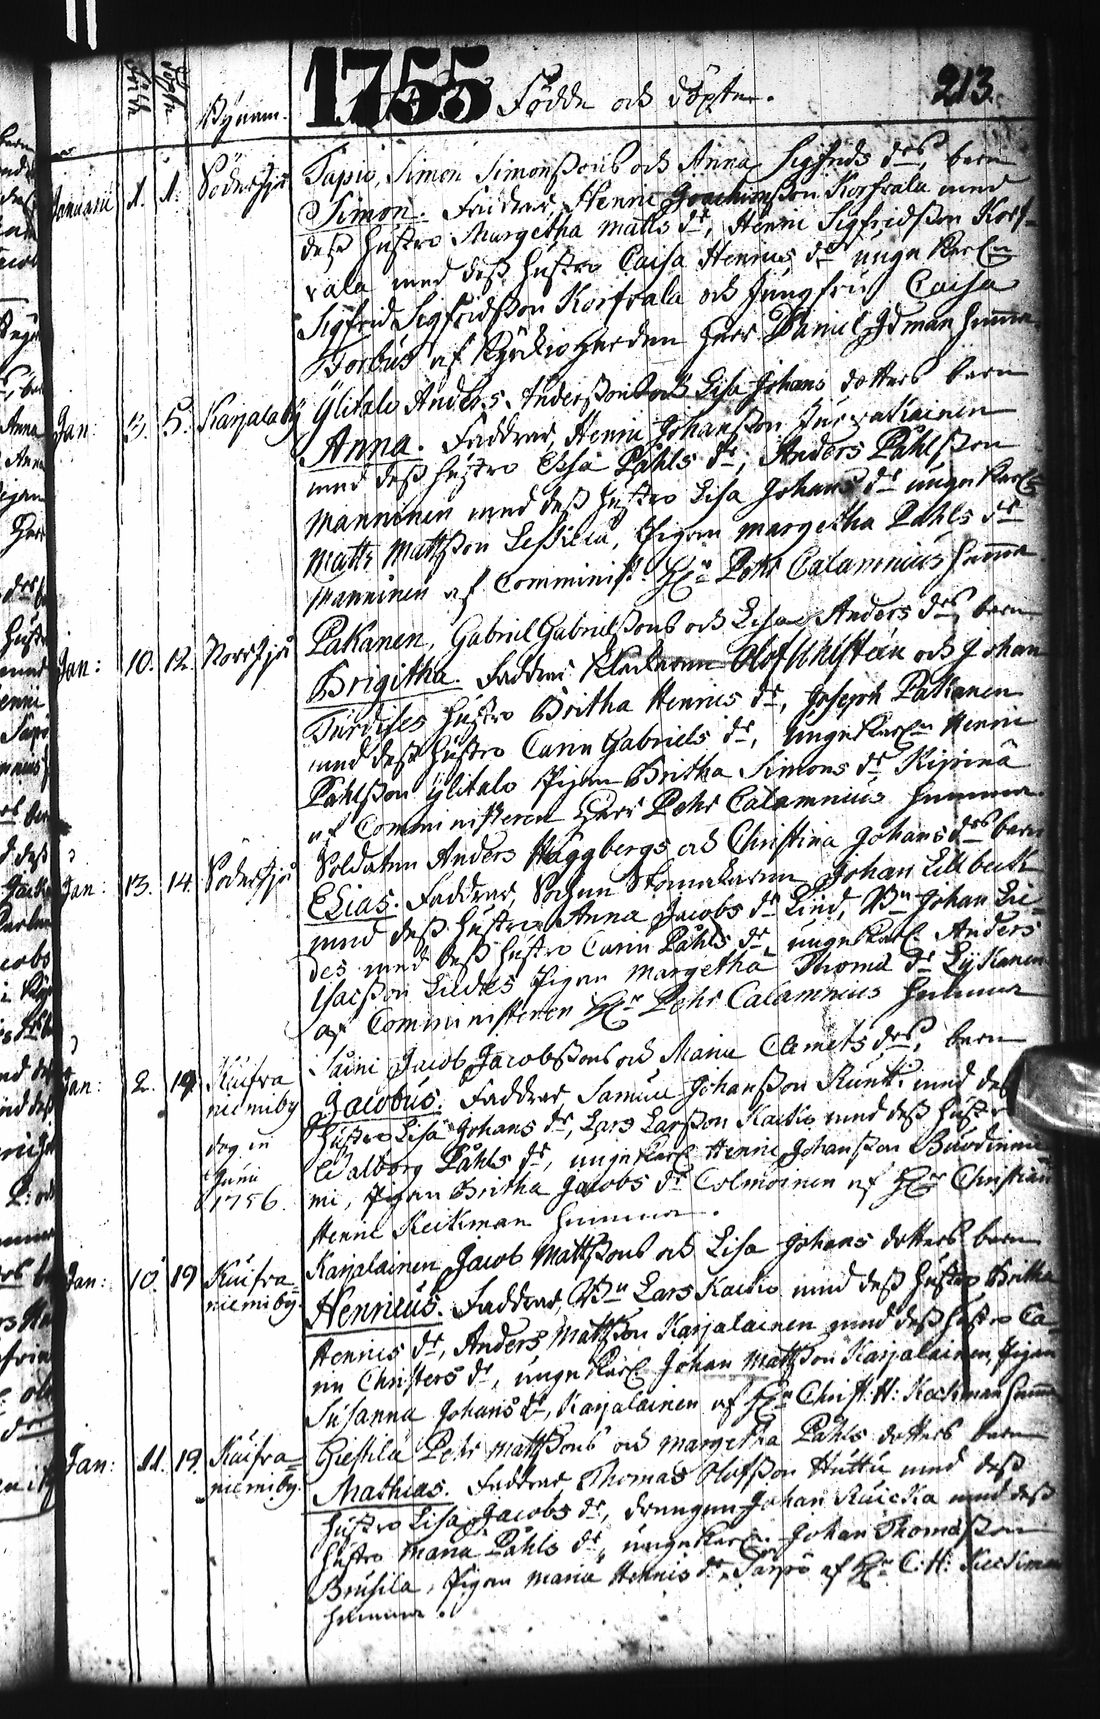 1755 Födde och döpte. 213.
Bynam.
Januarii 1. 1. Söderhju Tapio, Simon Simonßons och Anna Sigfrids drs, barn
Simon. Faddrar, Henric Joachimßon Korfvala med
deß hustro Margetha Matts dr, Henric Sigfridßon Korf-
vala med deß hustro Caisa Henrics dr unge Karlen
Sigfrid Sigfridßon Korfvala och Jungfru Caisa
Forbus af Kyrkioherden Herr Daniel Idman hemma.
Jan: 3. 5. Karjalaby Ylitalo Anders Anderßons och Lisa Johans dotters barn
Anna. Faddrar, Henric Johanßon
med deß hustro Påhls dr, Anders Påhlßon
Manninen med deß hustro Lisa Johans dr unge Karlen
Matts Mattßon, Pigan Margetha Påhls dr
Manninen af Comminist. Hr Pehr Calamnius hemma
Jan: 10. 12. Norrhju Pakanen, Gabriel Gabrielßons och Lisa Anders drs, barn
Brigitha. Faddrar Klockaren Olof och Johan
hustro Britha Henrics dr, Joseph Pakanen
med deß hustro Carin Gabriels dr, Unge Karlen Henric
Påhlßon Ylitalo Pigan Britha Simons dr
af Comministeren Herr Pehr Calamnius hemma.
Jan: 13. 14. Söderhju Soldaten Anders Häggbergs och Christina Johans drs barn
Elias. Faddrar, Sochne Skomakaren Johan Ekbeck
med deß hustro Anna Jacobs dr Lind, Bn Johan Lie-
des med deß hustro Carin Påhls dr, unge Karl. Anders
Isacßon Liedes Pigan Margetha Thomæ dr Lyskanen
af Comministeren Hr Pehr Calamnius hemma
Jan: 2. 19. Jacob Jacobßons och Maria Clemets drs, barn
niemiby Jacobus. Faddrar Samuel Johanßon med deß
dog in hustro Lisa Johans dr, Lars Larßon Kackio med deß hustro
Junii Walborg Påhls dr, unge Karl Henric Johanßon
1756. mi, Pigan Britha Jacobs dr Colmoinen af Hr Christian
Henric Keckman hemma.
Jan: 10. 19 Kuifra= Karjalainen Jacob Mattßons och Lisa Johans dotters barn
niemiby. Henricus. Faddrar, Bn Lars Kackio med deß hustro Britha
Henrics dr, Anders Mattßon Karjalainen med deß hustro Ca-
rin Christers dr, unge Karl. Johan Mattßon Karjalainen, Pigan
Susanna Johans dr, Karjalainen af Hr Christ: H: Keckman hemma
Jan: 11. 19. Kuifra= Giestilä Pehr Mattßons och Margetha Påhls dotters barn
niemiby. Mathias. Faddrar Thomas Olofßon Huttu med deß
hustro Lisa Jacobs dr, drengen Johan med deß
hustro Maria Påhls dr, unge Karl. Johan Thomaßon
Brusila, Pigan Maria Henrics dr af Hr C: H: Keckman
hemma.